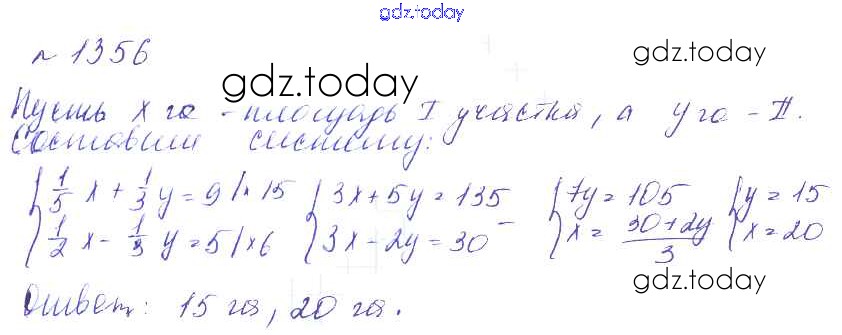 gdz.today
№ 1356
gdz.today
gdz.today
Пусть x га - площадь I участка, а y га - II.
Составим систему:
{ 1/5 x + 1/3 y = 9 | × 15 { 3x + 5y = 135 { 7y = 105 { y = 15
{ 1/2 x - 1/3 y = 5 | × 6 { 3x - 2y = 30 - { x = (30 + 2y)/3 { x = 20
gdz.today
Ответ: 15 га, 20 га.